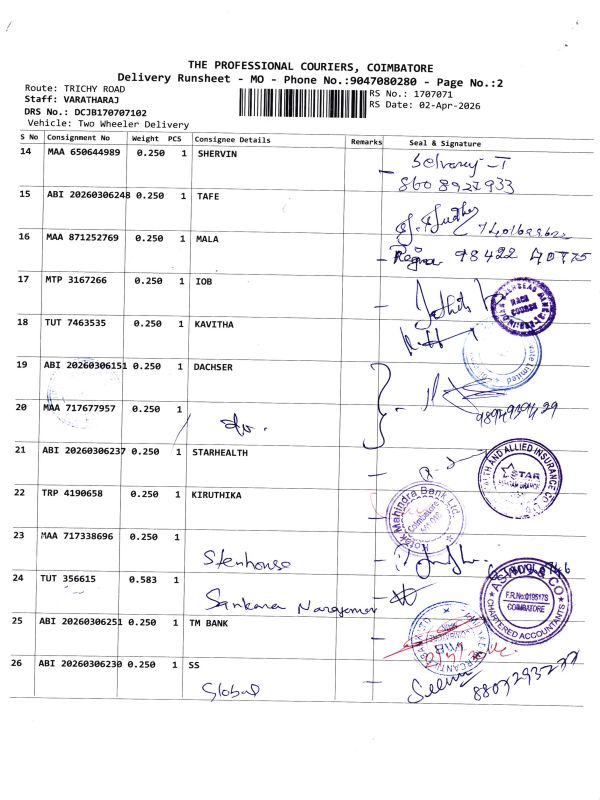 THE PROFESSIONAL COURIERS, COIMBATORE
Delivery Runsheet - MO - Phone No.:9047080280 - Page No.:2
Route: TRICHY ROAD
Staff: VARATHARAJ
DRS No.: DCJB170707102
Vehicle: Two Wheeler Delivery
RS No.: 1707071
RS Date: 02-Apr-2026
S No Consignment No Weight PCS Consignee Details Remarks Seal & Signature
14 MAA 650644989 0.250 1 SHERVIN
8608927933
15 ABI 20260306248 0.250 1 TAFE
16 MAA 871252769 0.250 1 MALA
Regina 98422 40775
17 MTP 3167266 0.250 1 IOB
RACE COURSE
18 TUT 7463535 0.250 1 KAVITHA
19 ABI 20260306151 0.250 1 DACHSER
20 MAA 717677957 0.250 1
21 ABI 20260306237 0.250 1 STARHEALTH
STAR
22 TRP 4190658 0.250 1 KIRUTHIKA
Kotak Mahindra Bank Ltd.
Coimbatore
23 MAA 717338696 0.250 1
Stenhouse
24 TUT 356615 0.583 1
Sankara Narayanan
CHARTERED ACCOUNTANTS
COIMBATORE
25 ABI 20260306251 0.250 1 TM BANK
26 ABI 20260306230 0.250 1 SS
Global